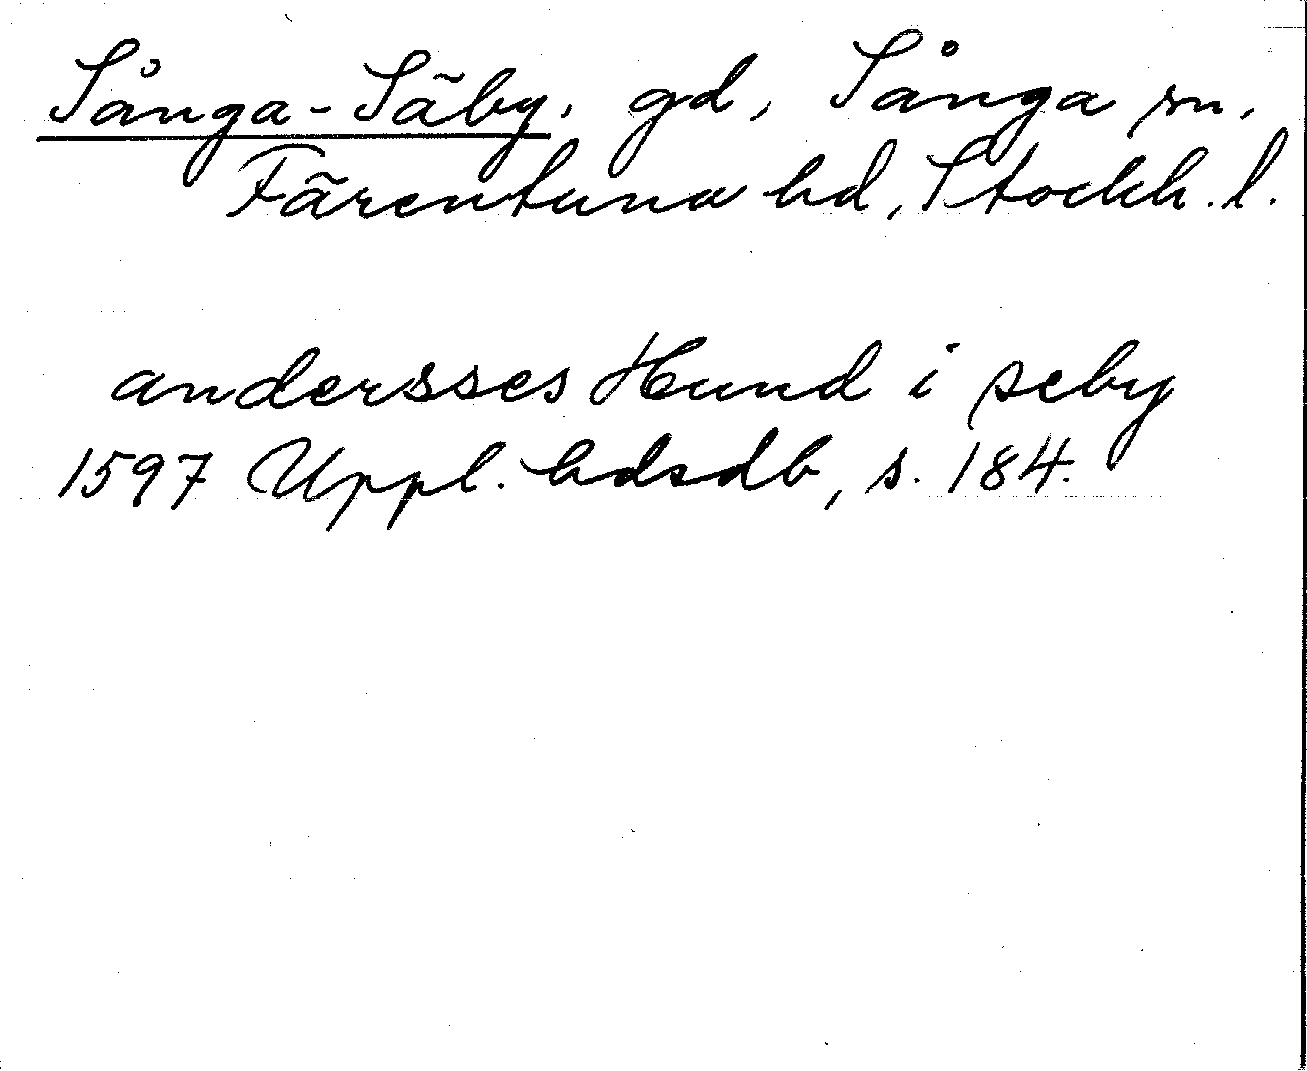 Sånga-Säby, gd, Sånga sn,
Färentuna hd, Stockh. l.
andersses Hund i seby
1597 Uppl. hdsdb, s. 184.